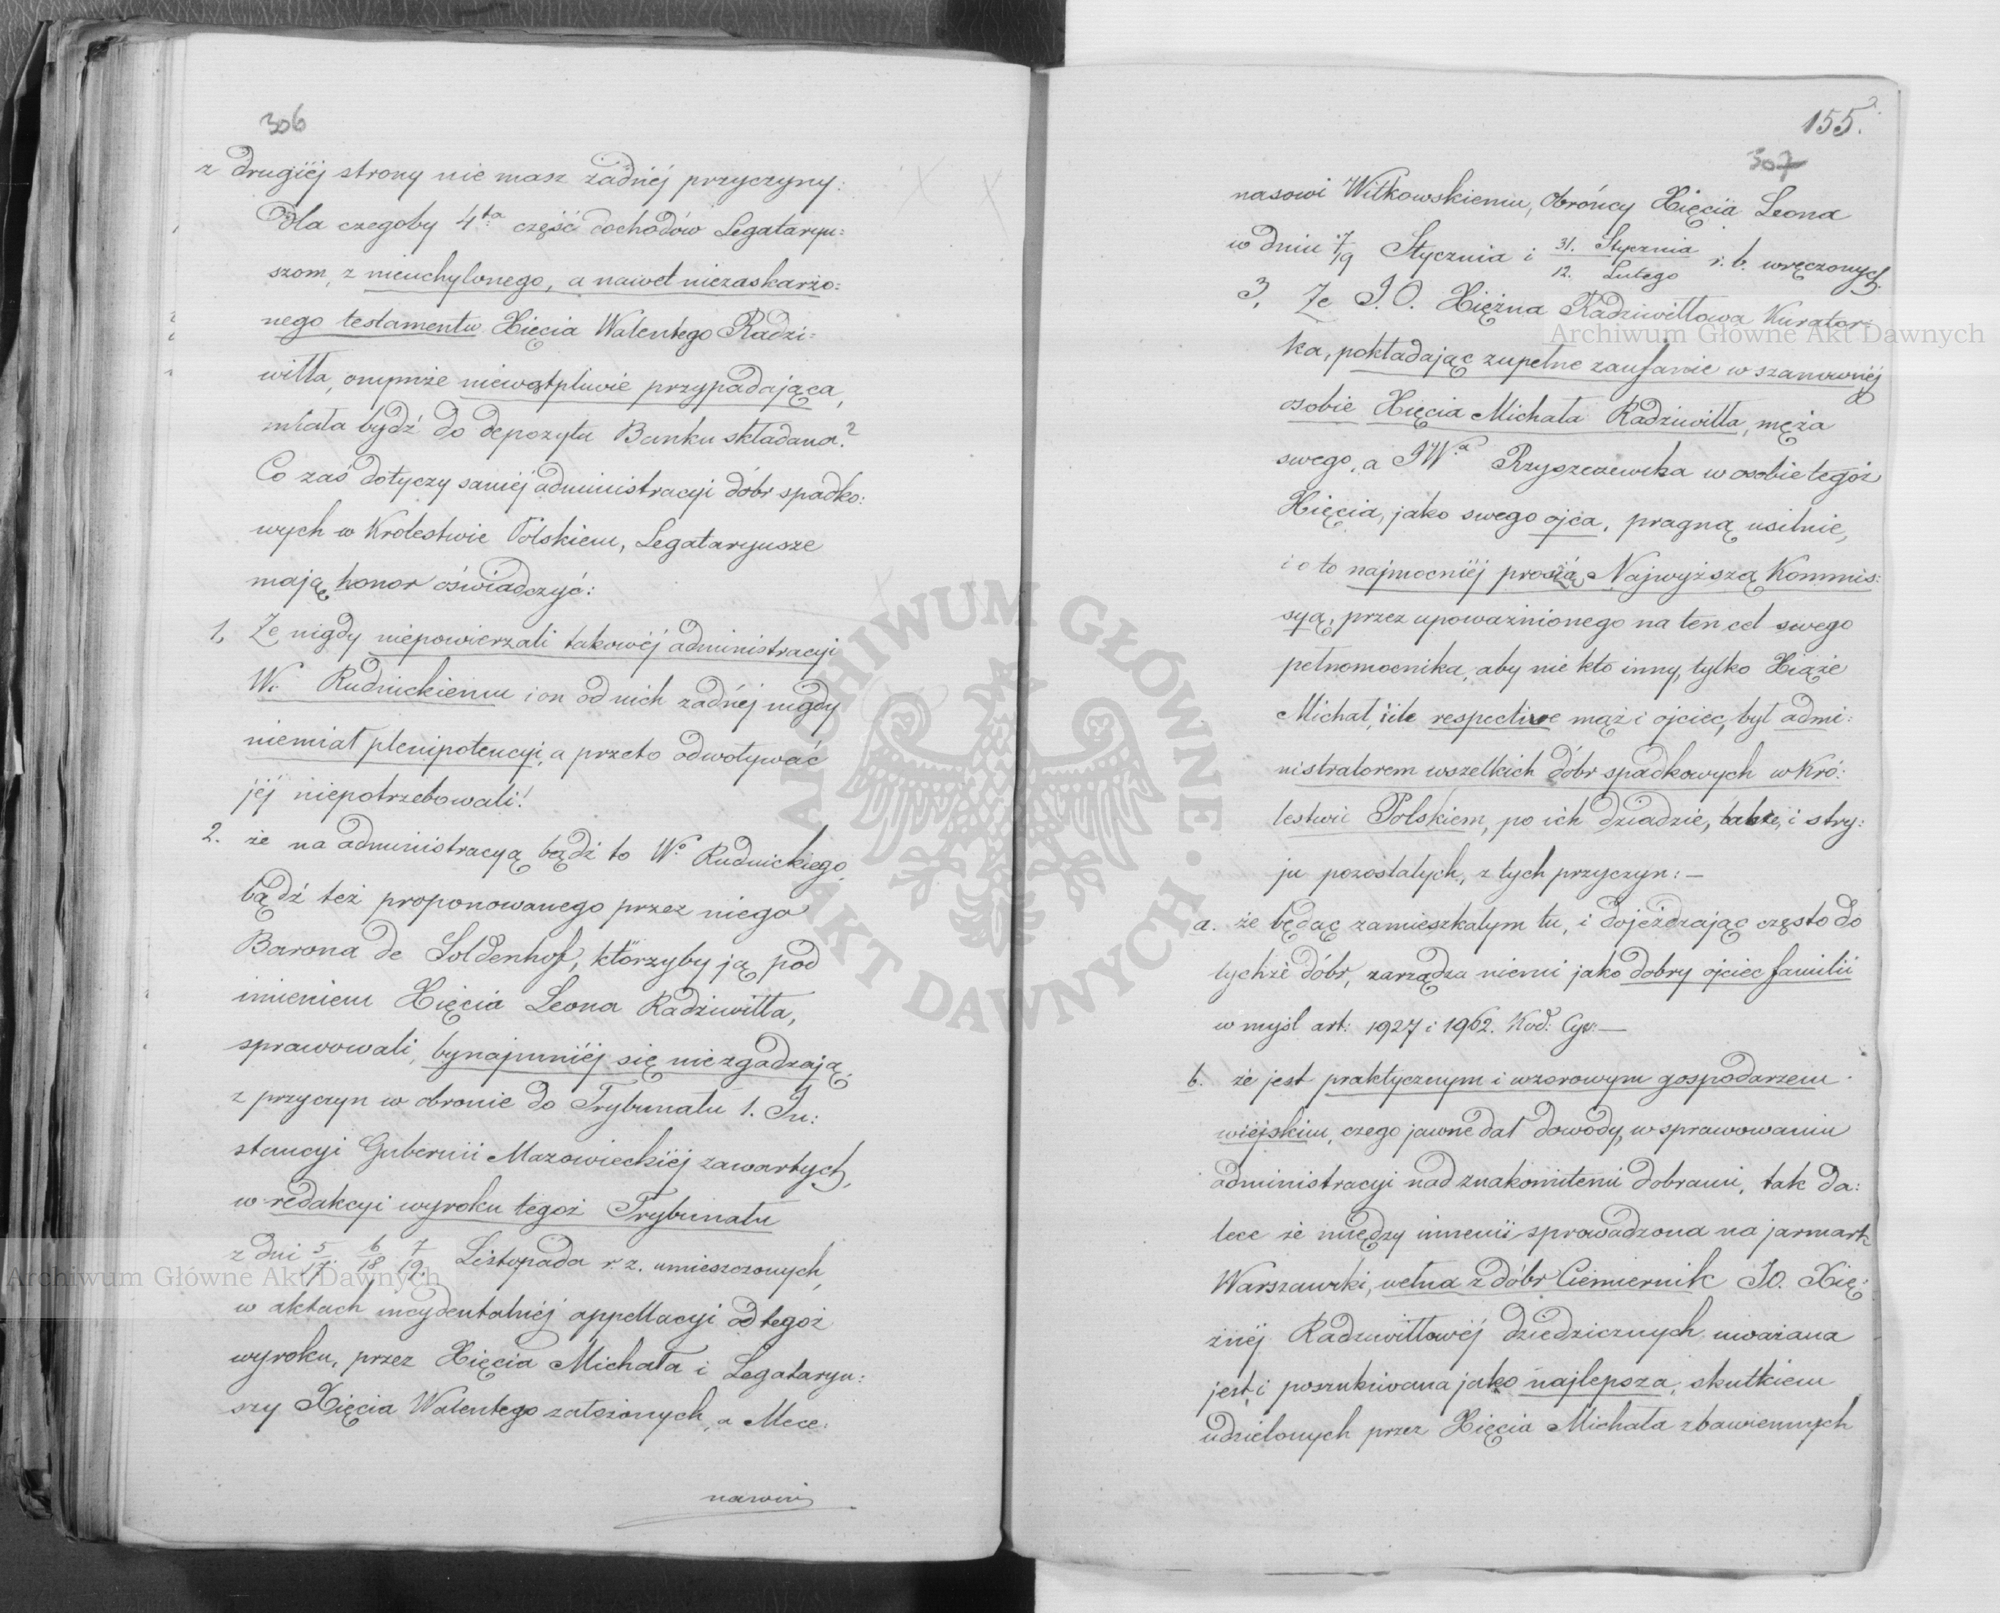 306
z drugiéj strony nie masz żadnéj przyczyny:
dla czegoby 4ta część dochodów Legataryu=
szom, z nieuchylonego, a nawet niezaskarżo=
nego testamentu Xięcia Walentego Radzi=
wiłła, onymże niewątpliwie przypadająca,
miała bydź do depozytu Banku składana?
Co zaś dotyczy saméj administracyi dóbr spadko=
wych w Królestwie Polskiem, Legataryusze
mają honor oświadczyć:
1, Że nigdy niepowierzali takowéj administracyi
W. Rudnickiemu i on od nich żadnéj nigdy
niemiał plenipotencyi, a przeto odwoływać
jéj niepotrzebowali!
2. że na administracyą bądź to Wo Rudnickiego,
bądź też proponowanego przez niego
Barona de Soldenhof, którzyby ją pod
imieniem Xięcia Leona Radziwiłła,
sprawowali, bynajmniéj się niezgadzają,
z przyczyn w obronie do Trybunału 1. In:
stancyi Gubernii Mazowieckiéj zawartych,
w redakcyi wyroku tegoż Trybunału
z dni 5/17. 6/18 7/19. Listopada r. z. umieszczonych,
w aktach incydentalnéj appellacyi od tegoż
wyroku, przez Xięcia Michała i Legataryu:
szy Xięcia Walentego założonych, a Mece:
155.
307
nasowi Witkowskiemu, Obrońcy Xięcia Leona
w dniu 7/19 Stycznia i 31. Stycznia / 12. Lutego r. b. wręczonych.
3, Że J. O. Xiężna Radziwiłłowa Kurator=
ka, pokładając zupełne zaufanie w szanownéj
osobie Xięcia Michała Radziwiłła, męża
swego, a JWa Rzyszczewska w osobie tegoż
Xięcia, jako swego ojca, pragną usilnie,
i o to najmocniéj proszą Najwyższą Kommis:
syą, przez upoważnionego na ten cel swego
pełnomocnika, aby nie kto inny, tylko Xiąże
Michał, iile respective mąż i ojciec, był admi:
nistratorem wszelkich dóbr spadkowych w Kró:
lestwie Polskiem, po ich dziadzie, babce, i stry:
ju pozostałych, z tych przyczyn: —
a. że będąc zamieszkałym tu, i dojeżdzając często do
tychże dóbr, zarządza niemi jako dobry ojciec familii
w myśl art: 1927 i 1962. Kod: Cyw: —
b. że jest praktycznym i wzorowym gospodarzem
wiejskim, czego jawne dał dowody, w sprawowaniu
administracyi nad znakomitemi dobrami, tak da:
lece że między innemi sprowadzona na jarmark
Warszawski, wełna z dóbr Ciemiernik JO. Xię:
żnéj Radziwiłłowéj dziedzicznych, uważana
jest, i poszukiwana jako najlepsza, skutkiem
udzielonych przez Xięcia Michała zbawiennych
Archiwum Główne Akt Dawnych
Archiwum Główne Akt Dawnych
ARCHIWUM GŁÓWNE • AKT DAWNYCH •